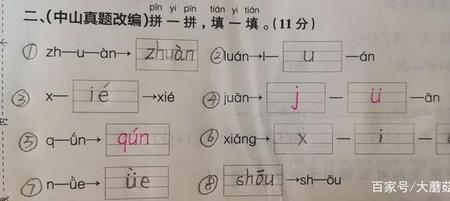 pīn yi pīn tián yi tián
二、(中山真题改编)拼一拼,填一填。(11分)
① zh—u—àn→ zhuàn ②luán→l— u —án
③ x— ié →xié ④ juān→ j — ü —ān
⑤ q—ún→ qún ⑥ xiǎng→ x — i —
⑦ n—üe→ üe ⑧ shōu →sh—ōu
百家号/大蘑菇